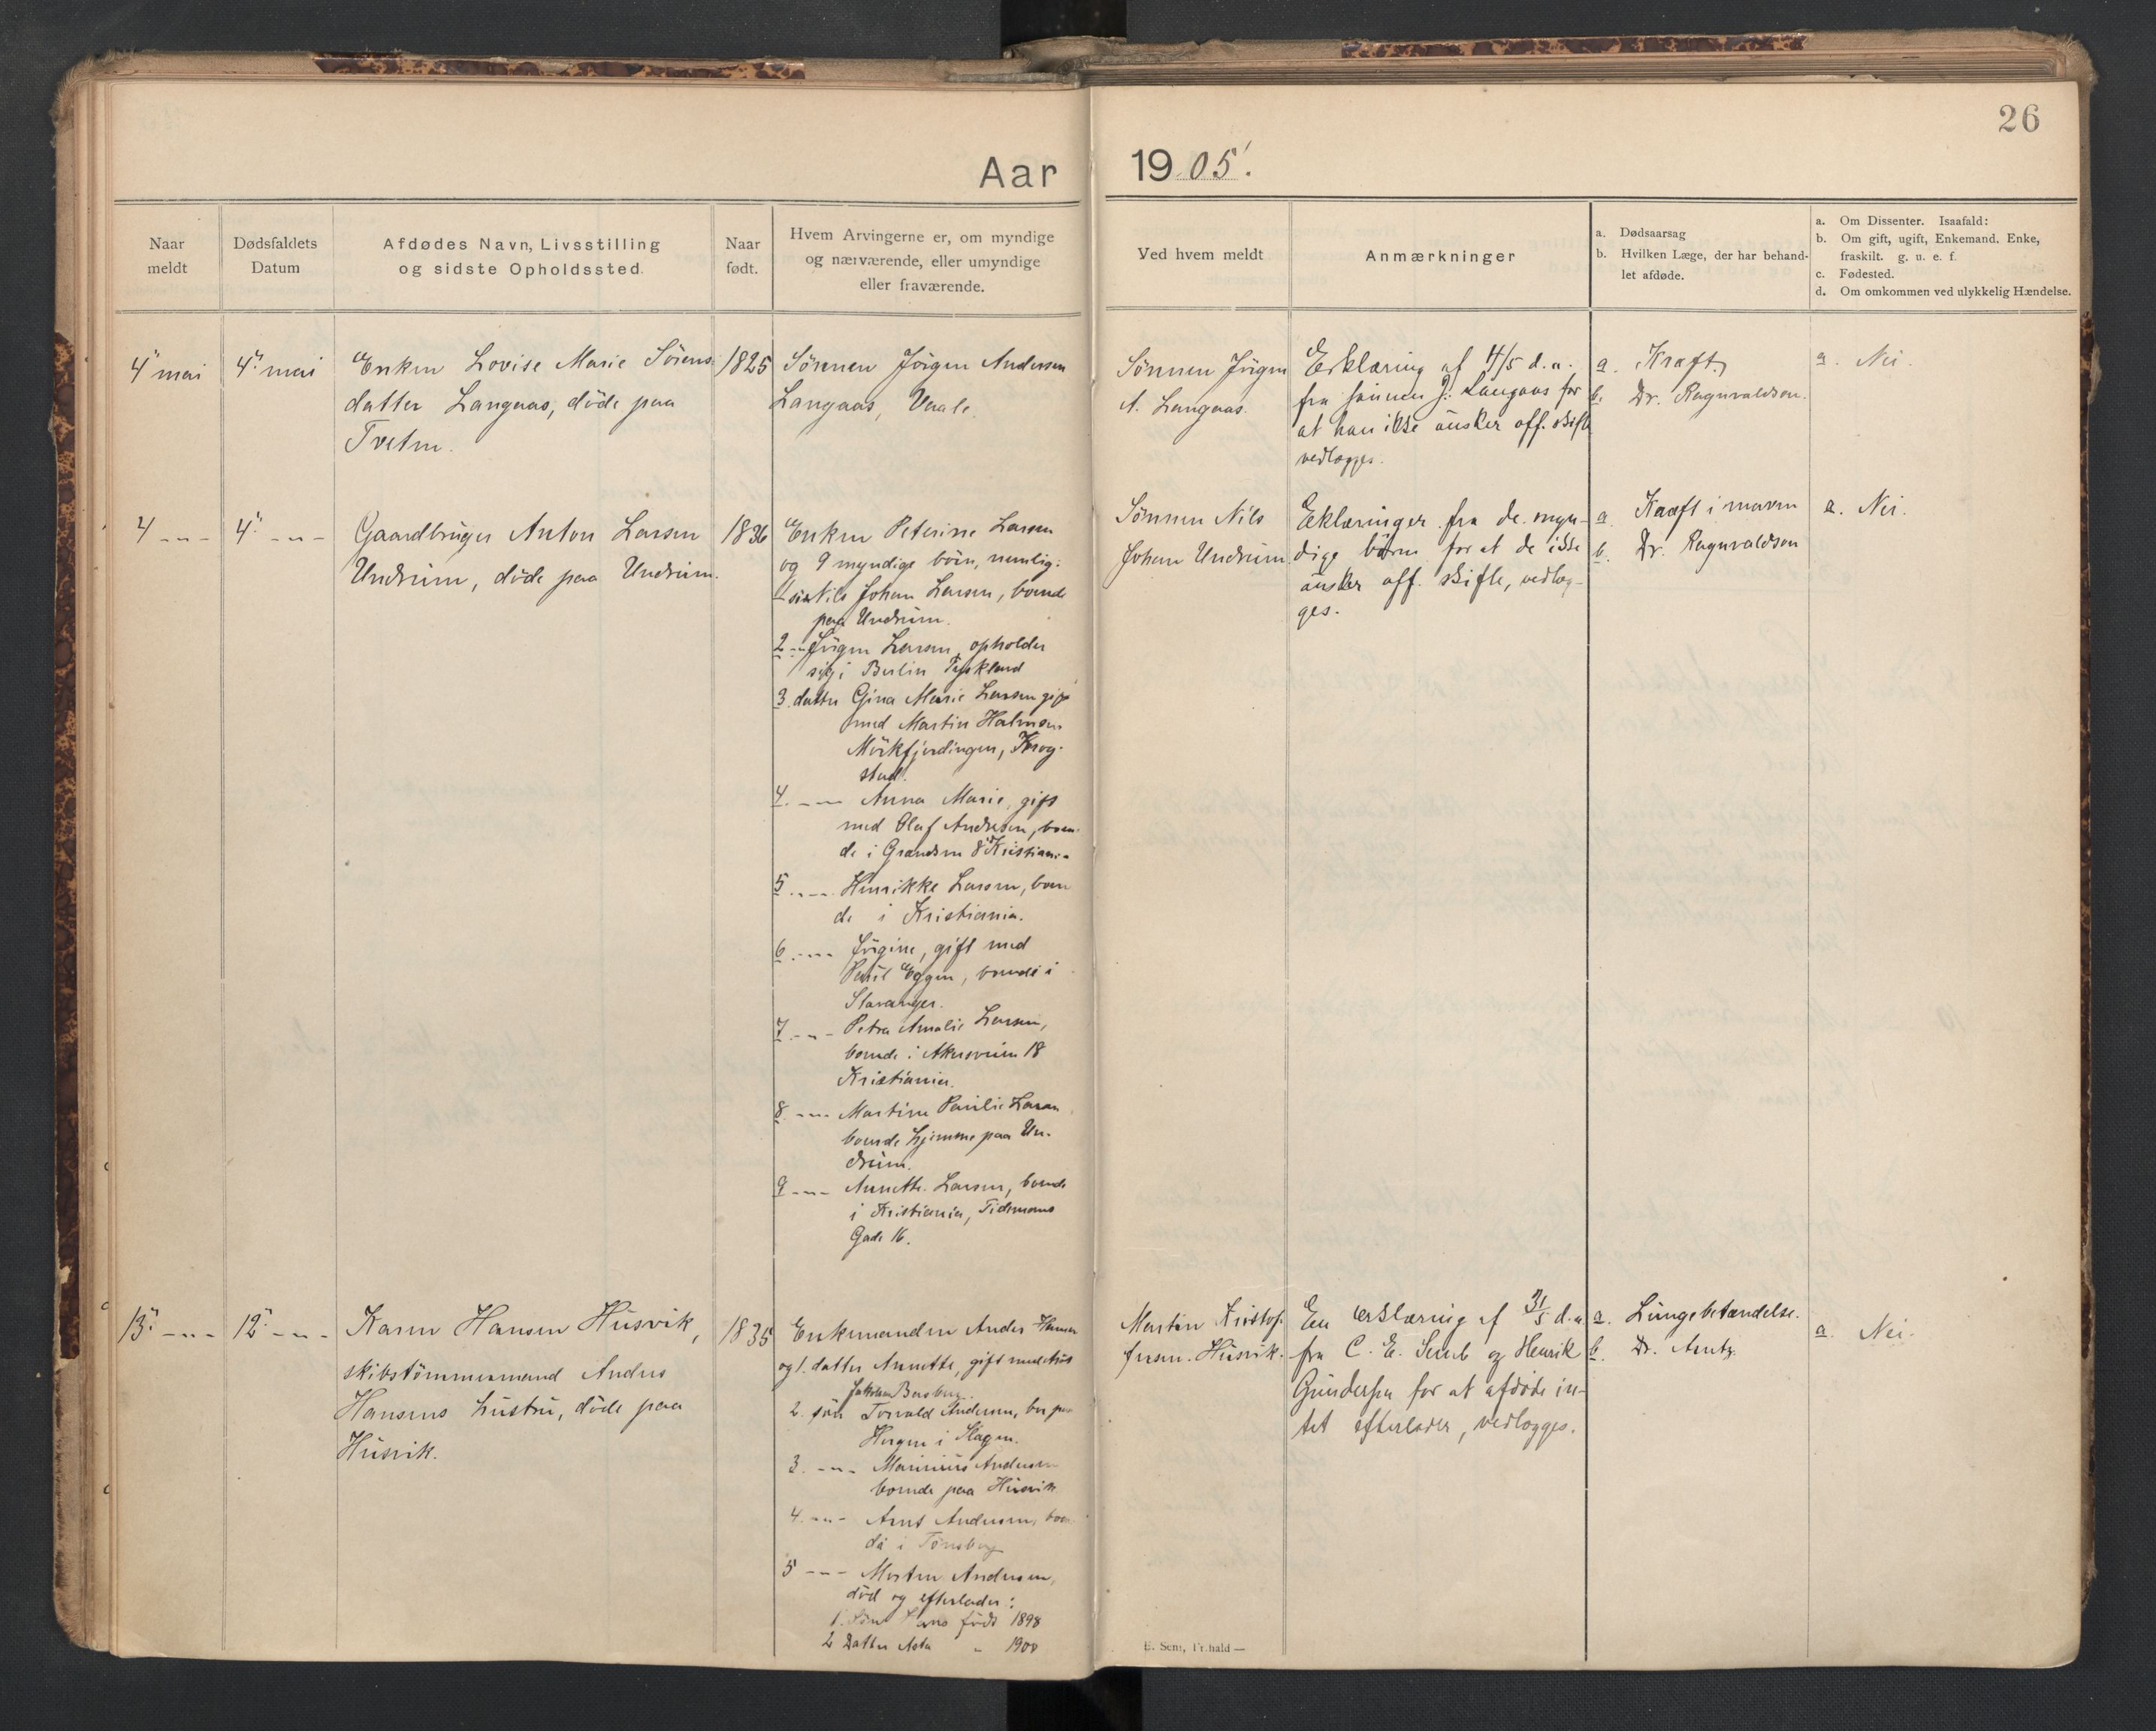 26
Aar 1905.
Naar meldt
Dødsfaldets Datum
Afdødes Navn, Livsstilling og sidste Opholdssted.
Naar født.
Hvem Arvingerne er, om myndige og nærværende, eller umyndige eller fraværende.
Ved hvem meldt
Anmærkninger
a. Dødsaarsag
b. Hvilken Læge, der har behand-
let afdøde.
a. Om Dissenter. Isaafald:
b. Om gift, ugift, Enkemand. Enke,
fraskilt. g. u. e. f.
c. Fødested.
d. Om omkommen ved ulykkelig Hændelse.
4 mai
4 mai
Enken Lovise Marie Sørens
datter Langaas, døde paa
Tveten.
1825
Sönnen Jörgen Andersen
Langaas, Vaale.
Sönnen Jörgen
A. Langaas.
Erklæring af 4/5 d.a.
fra sönnen J. Langaas for
at han ikke ønsker off. skifte
vedlægges.
a. Kræft.
b. Dr. Ragnvaldsen.
a. Nei.
4 -"-
4 -"-
Gaardbruger Anton Larsen
Undrum, döde paa Undrum.
1836
Enken Peterine Larsen
og 9 myndige börn, nemlig:
1 sön Nils Johan Larsen, boende
paa Undrum.
2 -"- Jörgen Larsen, opholder
sig i Berlin Tyskland
3. datter Gina Marie Larsen gift
med Martin Halvorsen
Mörkfjerdingen, Krog-
stad.
4. -"- Anna Marie, gift
med Olaf Andresen, boen-
de i Grændsen 8 Kristiania
5. -"- Henrikke Larsen, boen
de i Kristiania.
6. -"- Jörgine, gift med
Paul Eggen, boende i
Stavanger.
7. -"- Petra Amalie Larsen,
boende i Akersveien 18
Kristiania.
8. -"- Martine Paulie Larsen
boende hjemme paa Un-
drum.
9 -"- Annette Larsen, boende
i Kristiania, Tidemans
Gade 16.
Sönnen Nils
Johan Undrum
Eklæringer fra de myn-
dige börn for at de ikke
önsker off. skifte, vedlæg-
ges.
a. Kræft i maven
b. Dr. Ragnvaldsen
a. Nei.
13 -"-
12 -"-
Karen Hansen Husvik,
skibstömmermand Anders
Hansens hustru, döde paa
Husvik.
1835
Enkemanden Anders Hansen
og 1. datter Annette, gift med
2. sön Torvald Andersen, bor paa
i Slagen.
3. -"- Marinius Andersen
boende paa Husvik
4. -"- Arnt Andersen, boen
de i Tönsberg
5 -"- Morten Andersen,
död og efterlader:
1. Sön Hans född 1898
2 Datter Asta " 1900
Martin Kristof-
fersen. Husvik.
En erklæring af 31/5 d.a.
fra C. E. Semb og Henrik
Gundersen for at afdöde in-
tet efterlader, vedlægges.
a. Lungebetændelse.
b. Dr. Arntz.
a. Nei.
E. Sem, Fr.hald —